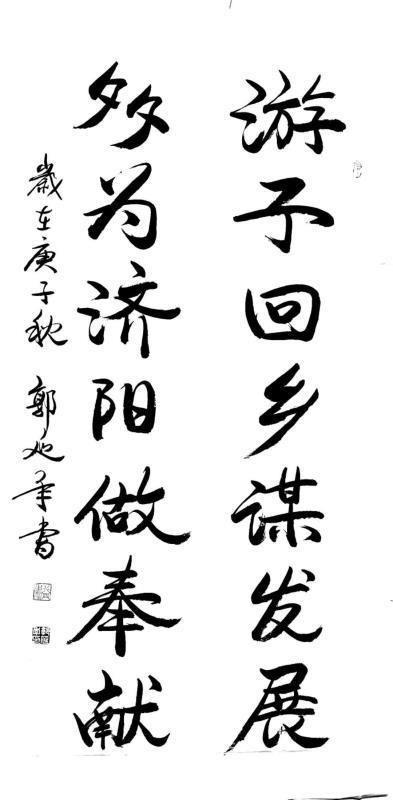 游子回乡谋发展
多为济阳做奉献
歳在庚子秋 郭延年書